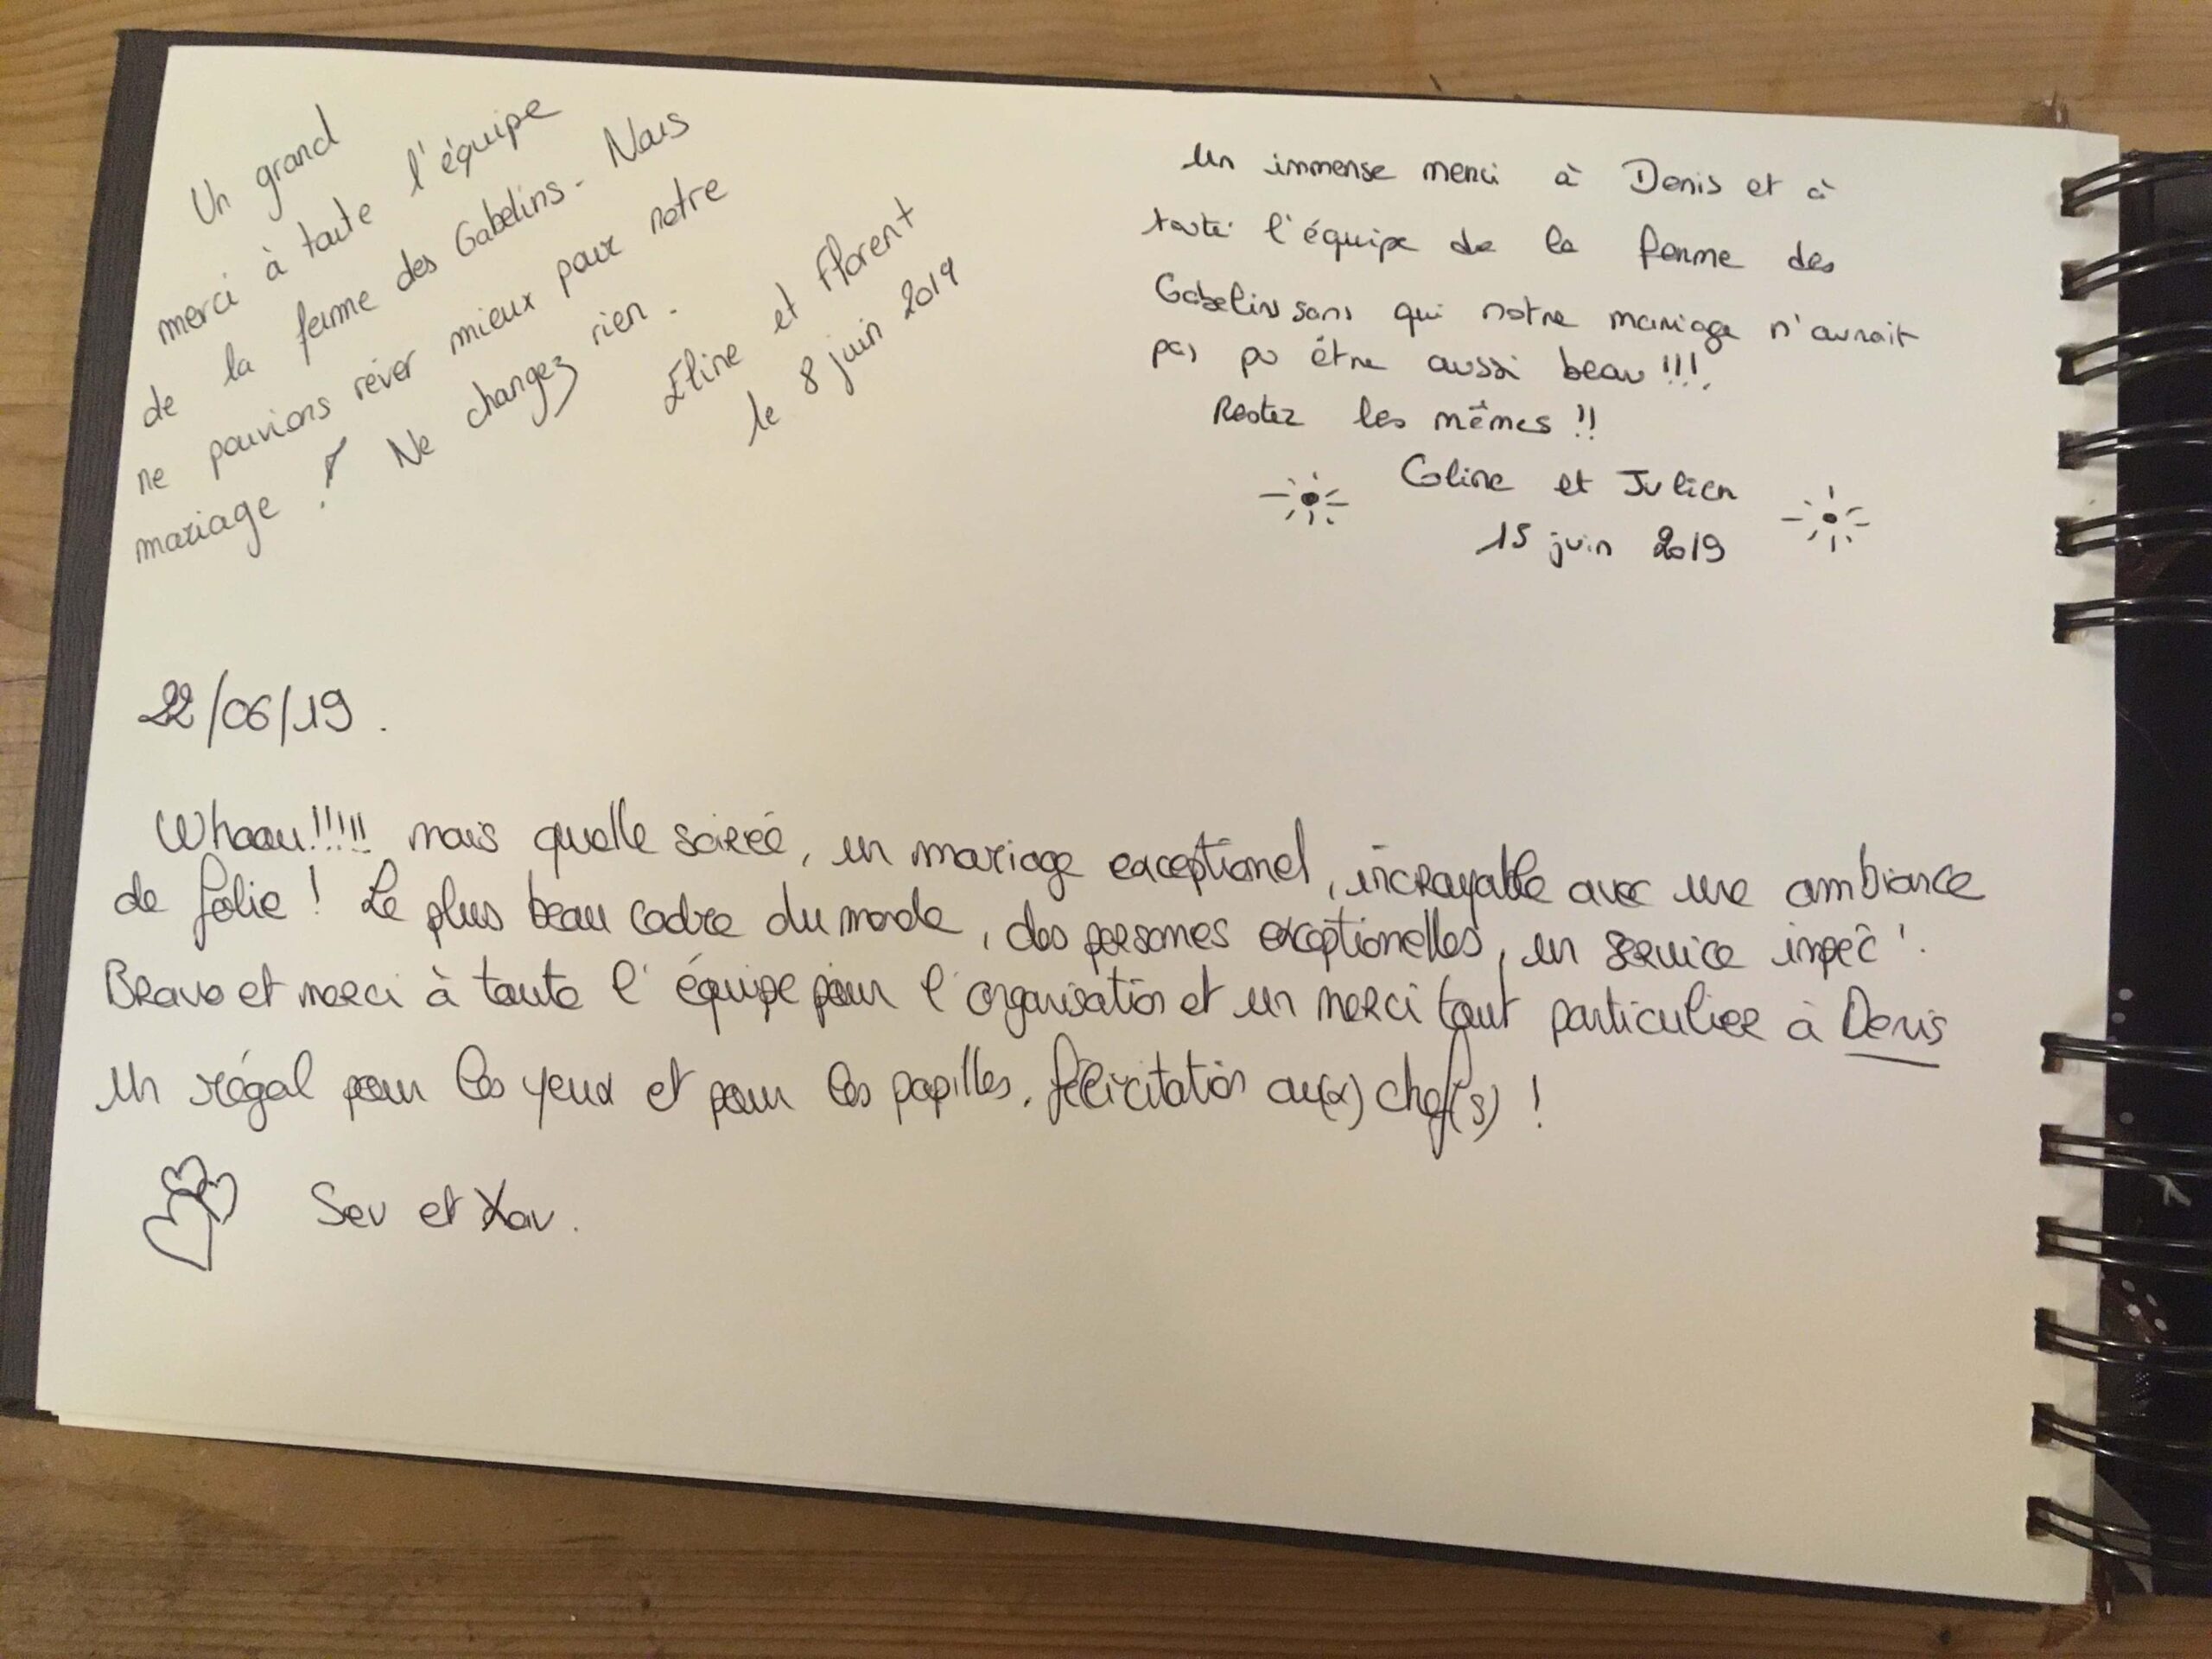 Un grand
merci à toute l'équipe
de la ferme des Gabelins - Nous
ne pouvions rêver mieux pour notre
mariage ! Ne changez rien.
Eline et Florent
le 8 juin 2019
Un immense merci à Denis et à
toute l'équipe de la ferme des
Gabelins sans qui notre mariage n'aurait
pas pu être aussi beau !!!
Restez les mêmes !!
Coline et Julien
15 juin 2019
22/06/19.
Whaou!!!!! mais quelle soirée, un mariage exceptionel, incroyable avec une ambiance
de folie ! Le plus beau cadre du monde, des personnes exceptionelles, un service impec'.
Bravo et merci à toute l'équipe pour l'organisation et un merci tout particulier à Denis
Un régal pour les yeux et pour les papilles, félicitation au(x) chef(s) !
Sev et Xav.